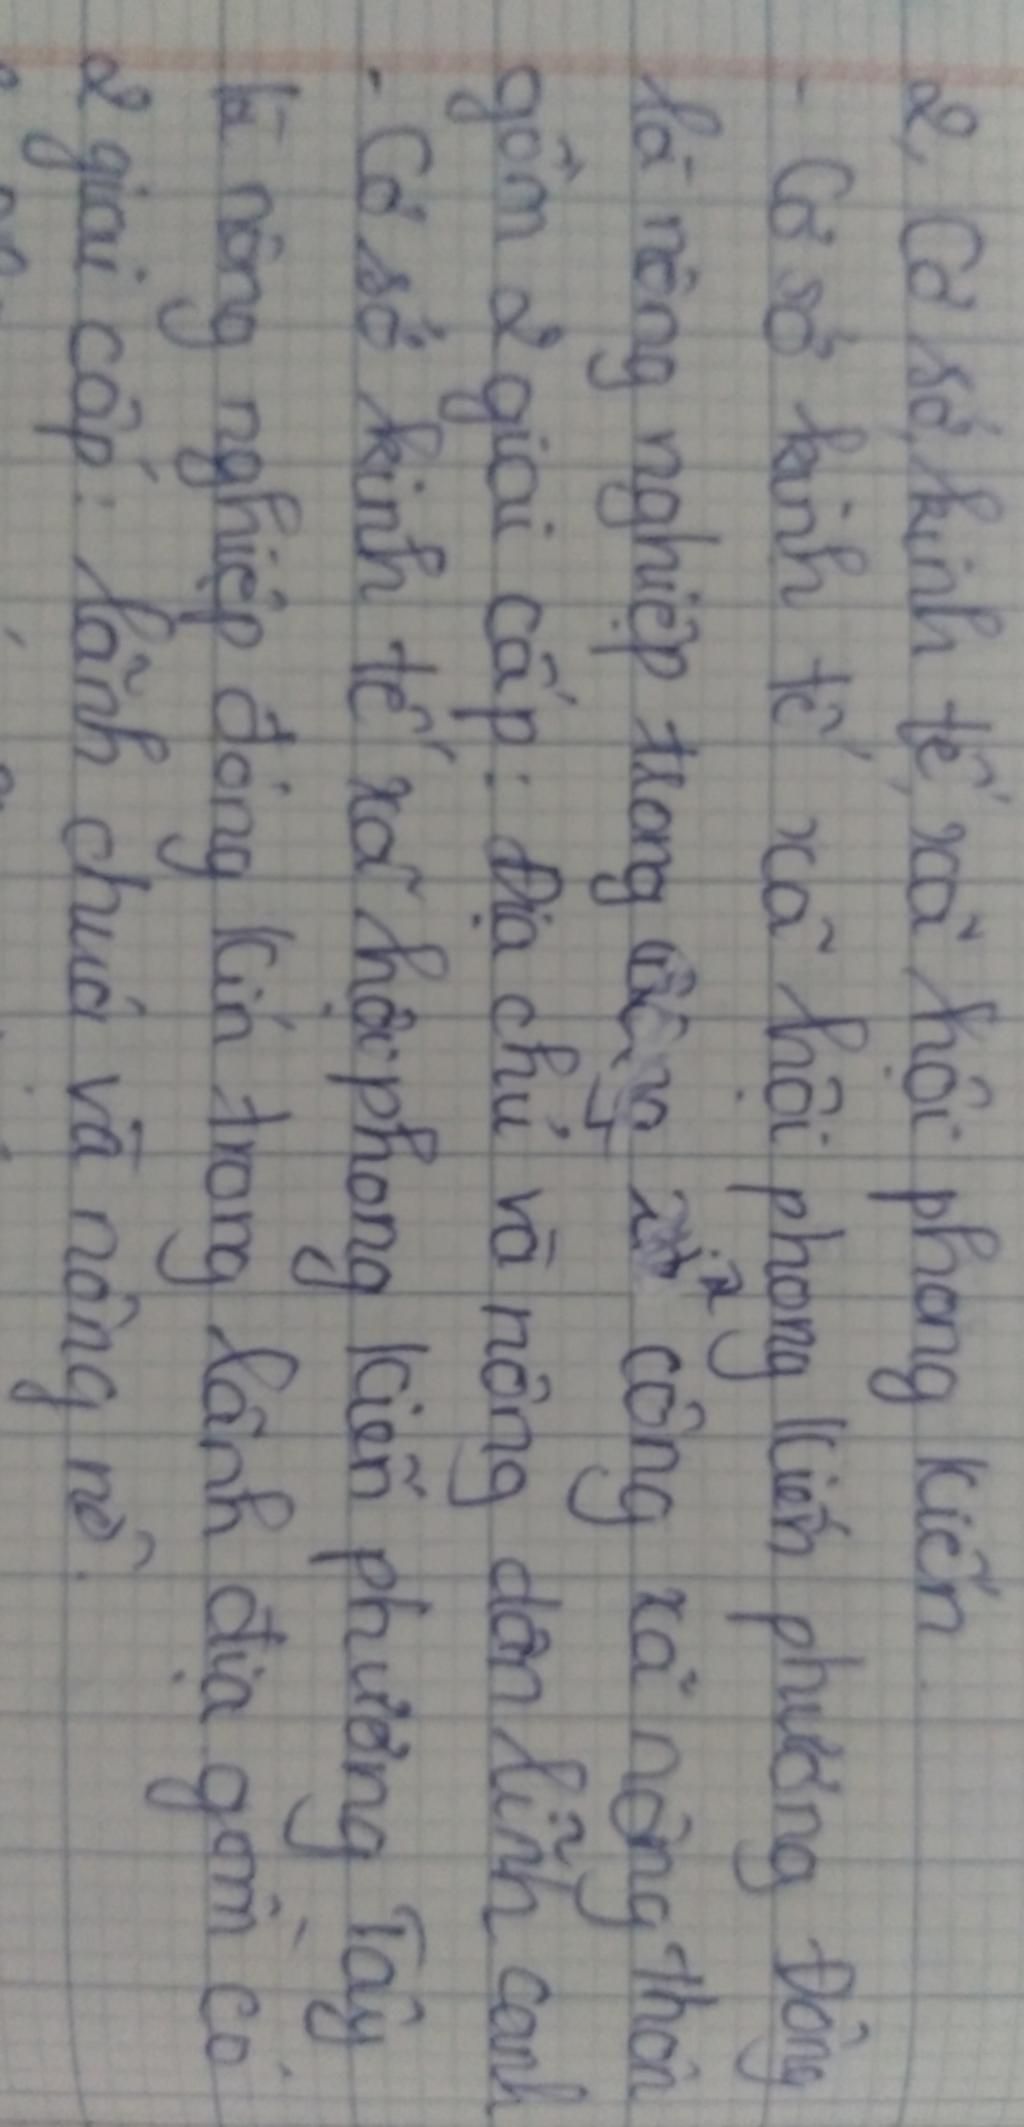 2, Cơ sở kinh tế, xã hội phong kiến.
- Cơ sở kinh tế xã hội phong kiến phương Đông
là nông nghiệp trong công xã nông thôn
gồm 2 giai cấp: Địa chủ và nông dân lĩnh canh
- Cơ sở kinh tế xã hội phong kiến phương Tây
là nông nghiệp đóng kín trong lãnh địa gồm có
2 giai cấp: lãnh chuá và nông nô.